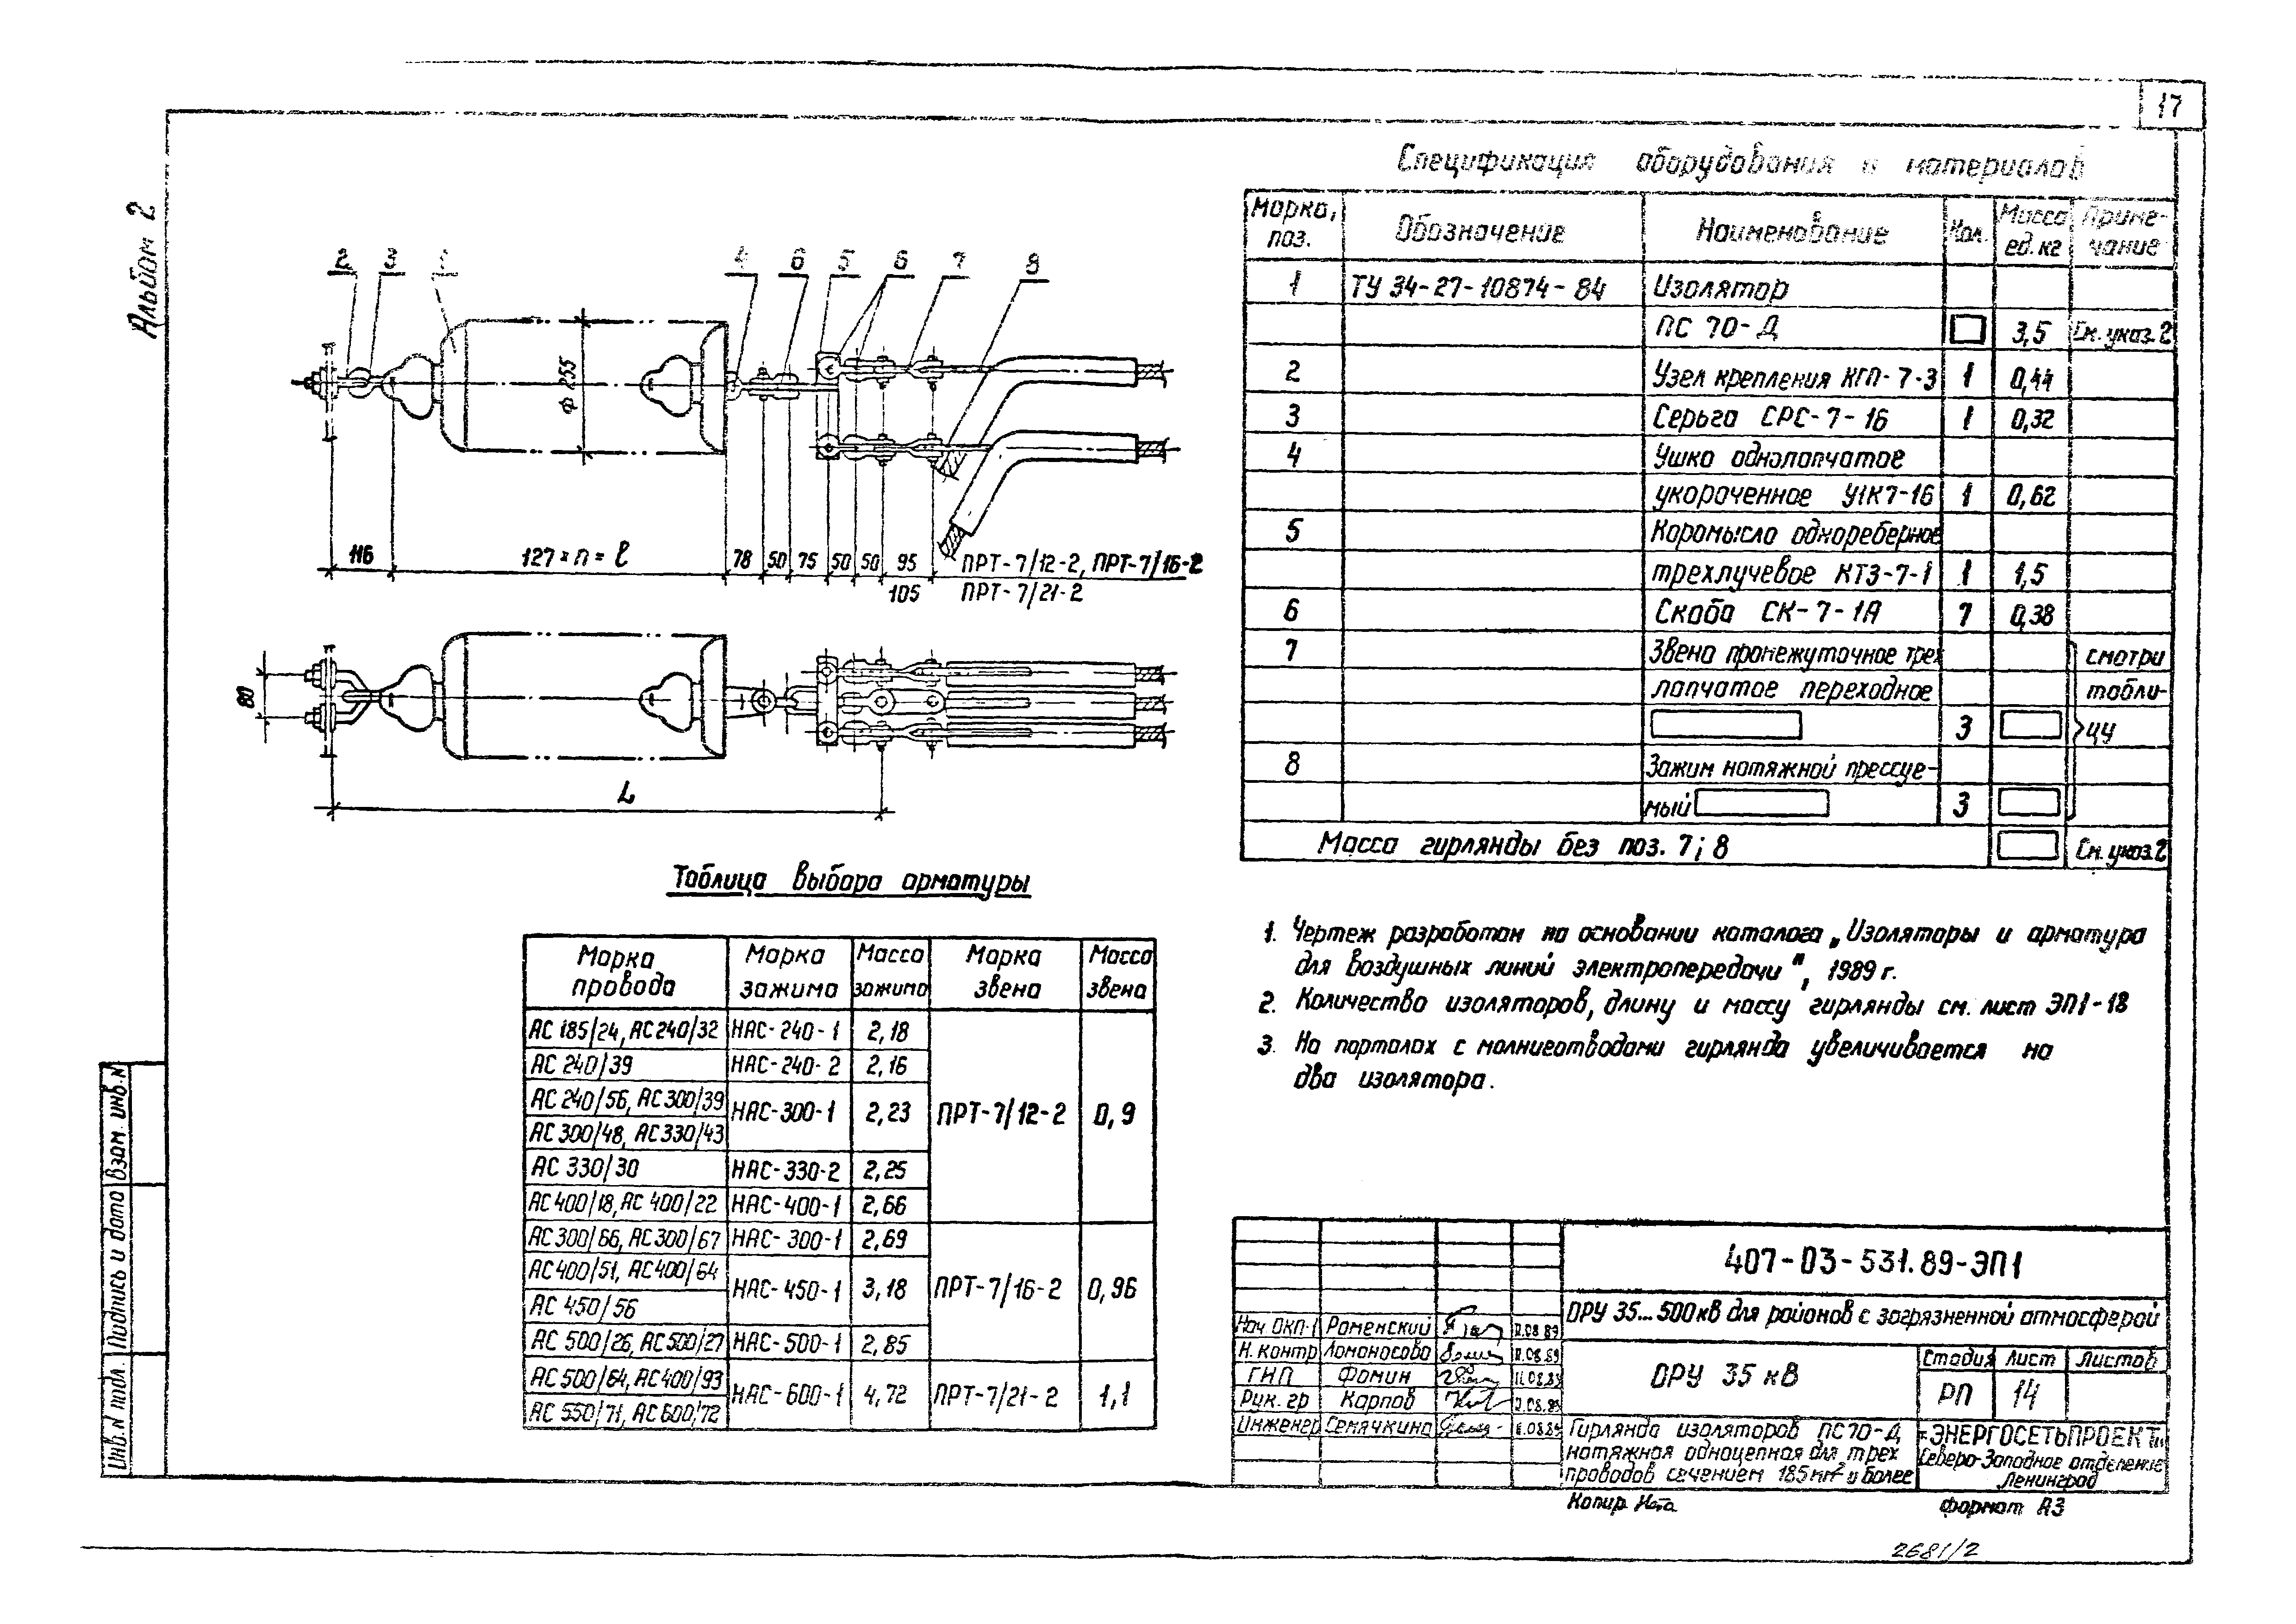 17
Альбом 2
Спецификация оборудования и материалов
Марка, поз. Обозначение Наименование Кол. Масса ед. кг Примечание
1 ТУ 34-27-10874-84 Изолятор
ПС 70-Д 3,5 См. указ. 2
2 Узел крепления КГП-7-3 1 0,44
3 Серьга СРС-7-16 1 0,32
4 Ушко однолапчатое
укороченное У1К7-16 1 0,62
5 Коромысло однореберное
трехлучевое КТ3-7-1 1 1,5
6 Скоба СК-7-1А 7 0,38
7 Звено промежуточное трех
лапчатое переходное
3
смотри таблицу
8 Зажим натяжной прессуе-
мый 3
Масса гирлянды без поз. 7; 8 См. указ. 2
2 3 1 4 6 5 6 7 8
Ф 255
116 127 × n = l 78 50 75 50 50 95 ПРТ-7/12-2, ПРТ-7/16-2
105 ПРТ-7/21-2
80
L
Таблица выбора арматуры
Марка провода Марка зажима Масса зажима Марка звена Масса звена
АС 185/24, АС 240/32 НАС-240-1 2,18
АС 240/39 НАС-240-2 2,16
АС 240/56, АС 300/39 НАС-300-1 2,23 ПРТ-7/12-2 0,9
АС 300/48, АС 330/43
АС 330/30 НАС-330-2 2,25
АС 400/18, АС 400/22 НАС-400-1 2,66
АС 300/66, АС 300/67 НАС-300-1 2,69
АС 400/51, АС 400/64 НАС-450-1 3,18 ПРТ-7/16-2 0,96
АС 450/56
АС 500/26, АС 500/27 НАС-500-1 2,85
АС 500/64, АС 400/93 НАС-600-1 4,72 ПРТ-7/21-2 1,1
АС 550/71, АС 600/72
1. Чертеж разработан на основании каталога „Изоляторы и арматура
для воздушных линий электропередачи", 1989 г.
2. Количество изоляторов, длину и массу гирлянды см. лист ЭП1-18
3. На порталах с молниеотводами гирлянда увеличивается на
два изолятора.
407-03-531.89-ЭП1
ОРУ 35...500 кВ для районов с загрязненной атмосферой
Нач ОКП-1 Роменский 11.08.89
Н. контр Ломоносова 11.08.89
ГИП Фомин 11.08.89
Рук. гр Карпов 11.08.89
Инженер Семячкина 11.08.89
ОРУ 35 кВ
Стадия Лист Листов
РП 14
Гирлянда изоляторов ПС70-Д
натяжная одноцепная для трех
проводов сечением 185мм² и более
ЭНЕРГОСЕТЬПРОЕКТ
Северо-Западное отделение
Ленинград
Копир.
Формат А3
2681/2
Инв. N подл. Подпись и дата Взам. инв. N